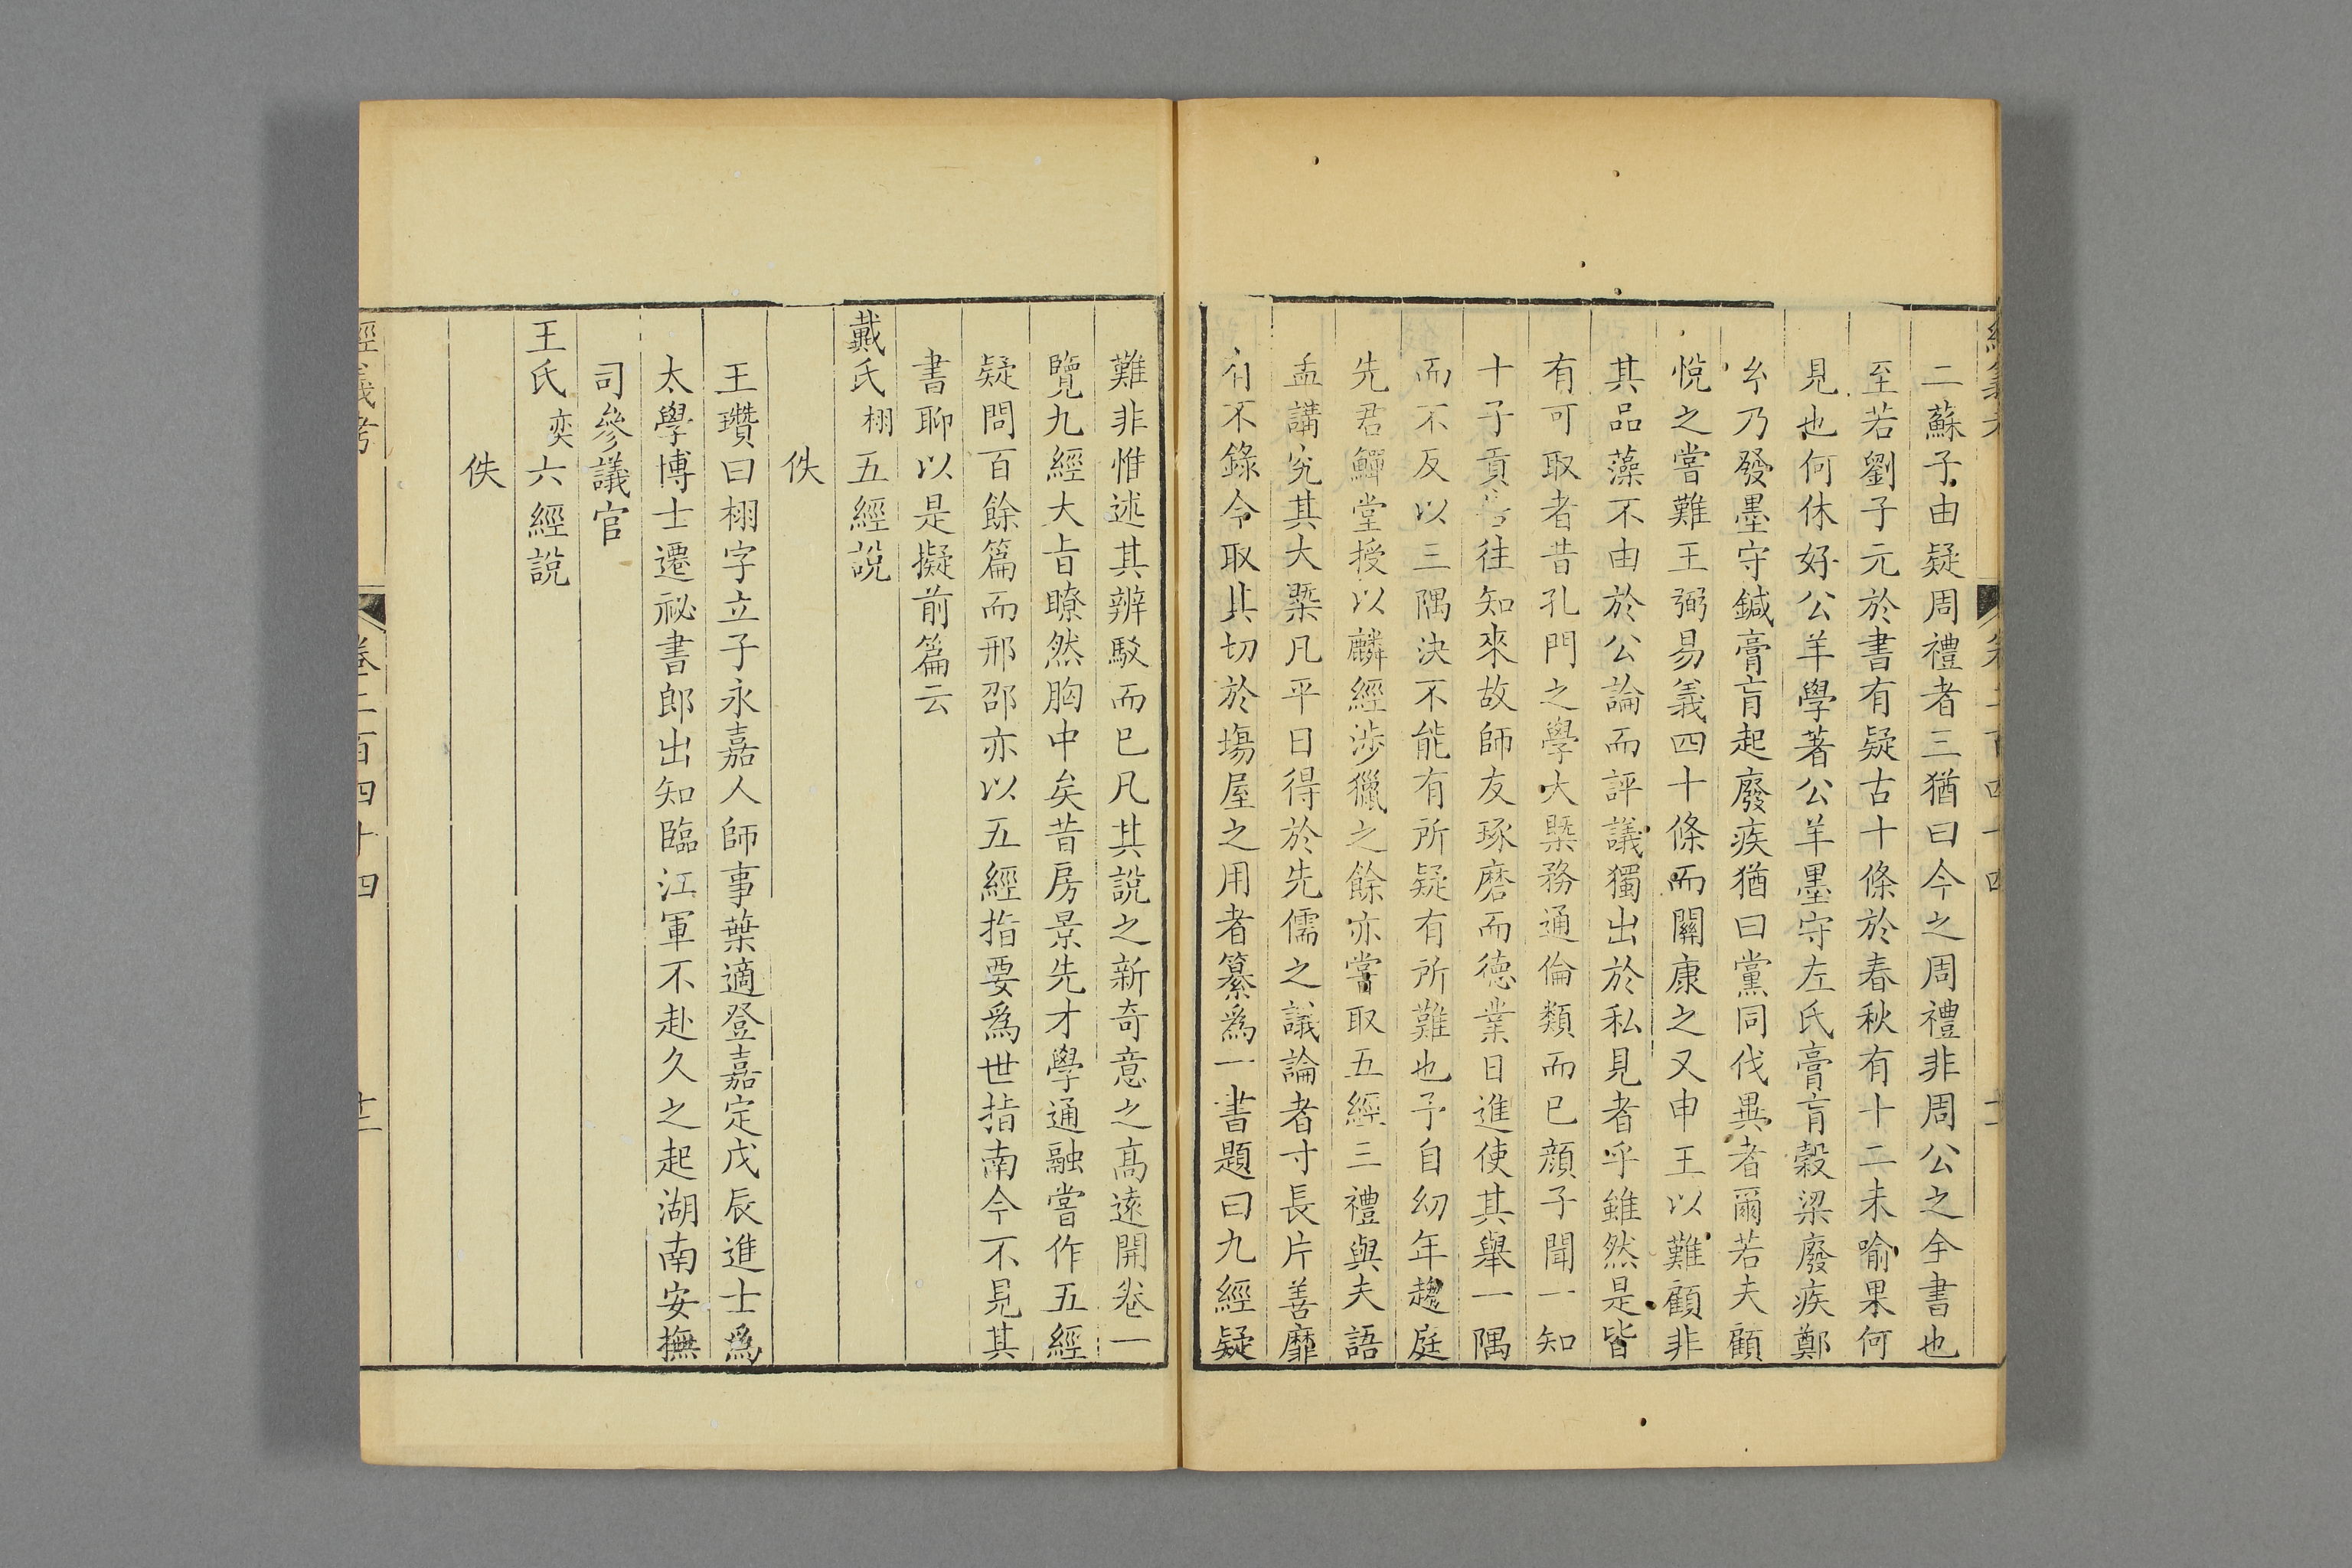 二蘇子由疑周禮者三猶曰今之周禮非周公之全書也
至若劉子元於書有疑古十條於春秋有十二未喻果何
見也何休好公羊學著公羊墨守左氏膏肓穀梁廢疾鄭
乃發墨守鍼膏肓起廢疾猶曰黨同伐異者爾若夫顧
悅之嘗難王弼易義四十條而關康之又申王以難顧非
其品藻不由於公論而評議獨出於私見者乎雖然是皆
有可取者昔孔門之學大槩務通倫類而已顔子聞一知
十子貢告往知來故師友琢磨而德業日進使其舉一隅
而不反以三隅決不能有所疑有所難也予自幼年趨庭
先君鱓堂授以麟經涉獵之餘亦嘗取五經三禮與夫語
孟講究其大槩凡平日得於先儒之議論者寸長片善靡
有不錄今取其切於塲屋之用者纂爲一書題曰九經疑
難非惟述其辨駁而已凡其說之新奇意之高遠開卷一
覽九經大旨瞭然胸中矣昔房景先才學通融嘗作五經
疑問百餘篇而邢邵亦以五經指要爲世指南今不見其
書聊以是擬前篇云
戴氏栩五經說
佚
王瓚曰栩字立子永嘉人師事葉適登嘉定戊辰進士爲
太學博士遷祕書郎出知臨江軍不赴久之起湖南安撫
司參議官
王氏奕六經說
佚
經義考 卷二百四十四